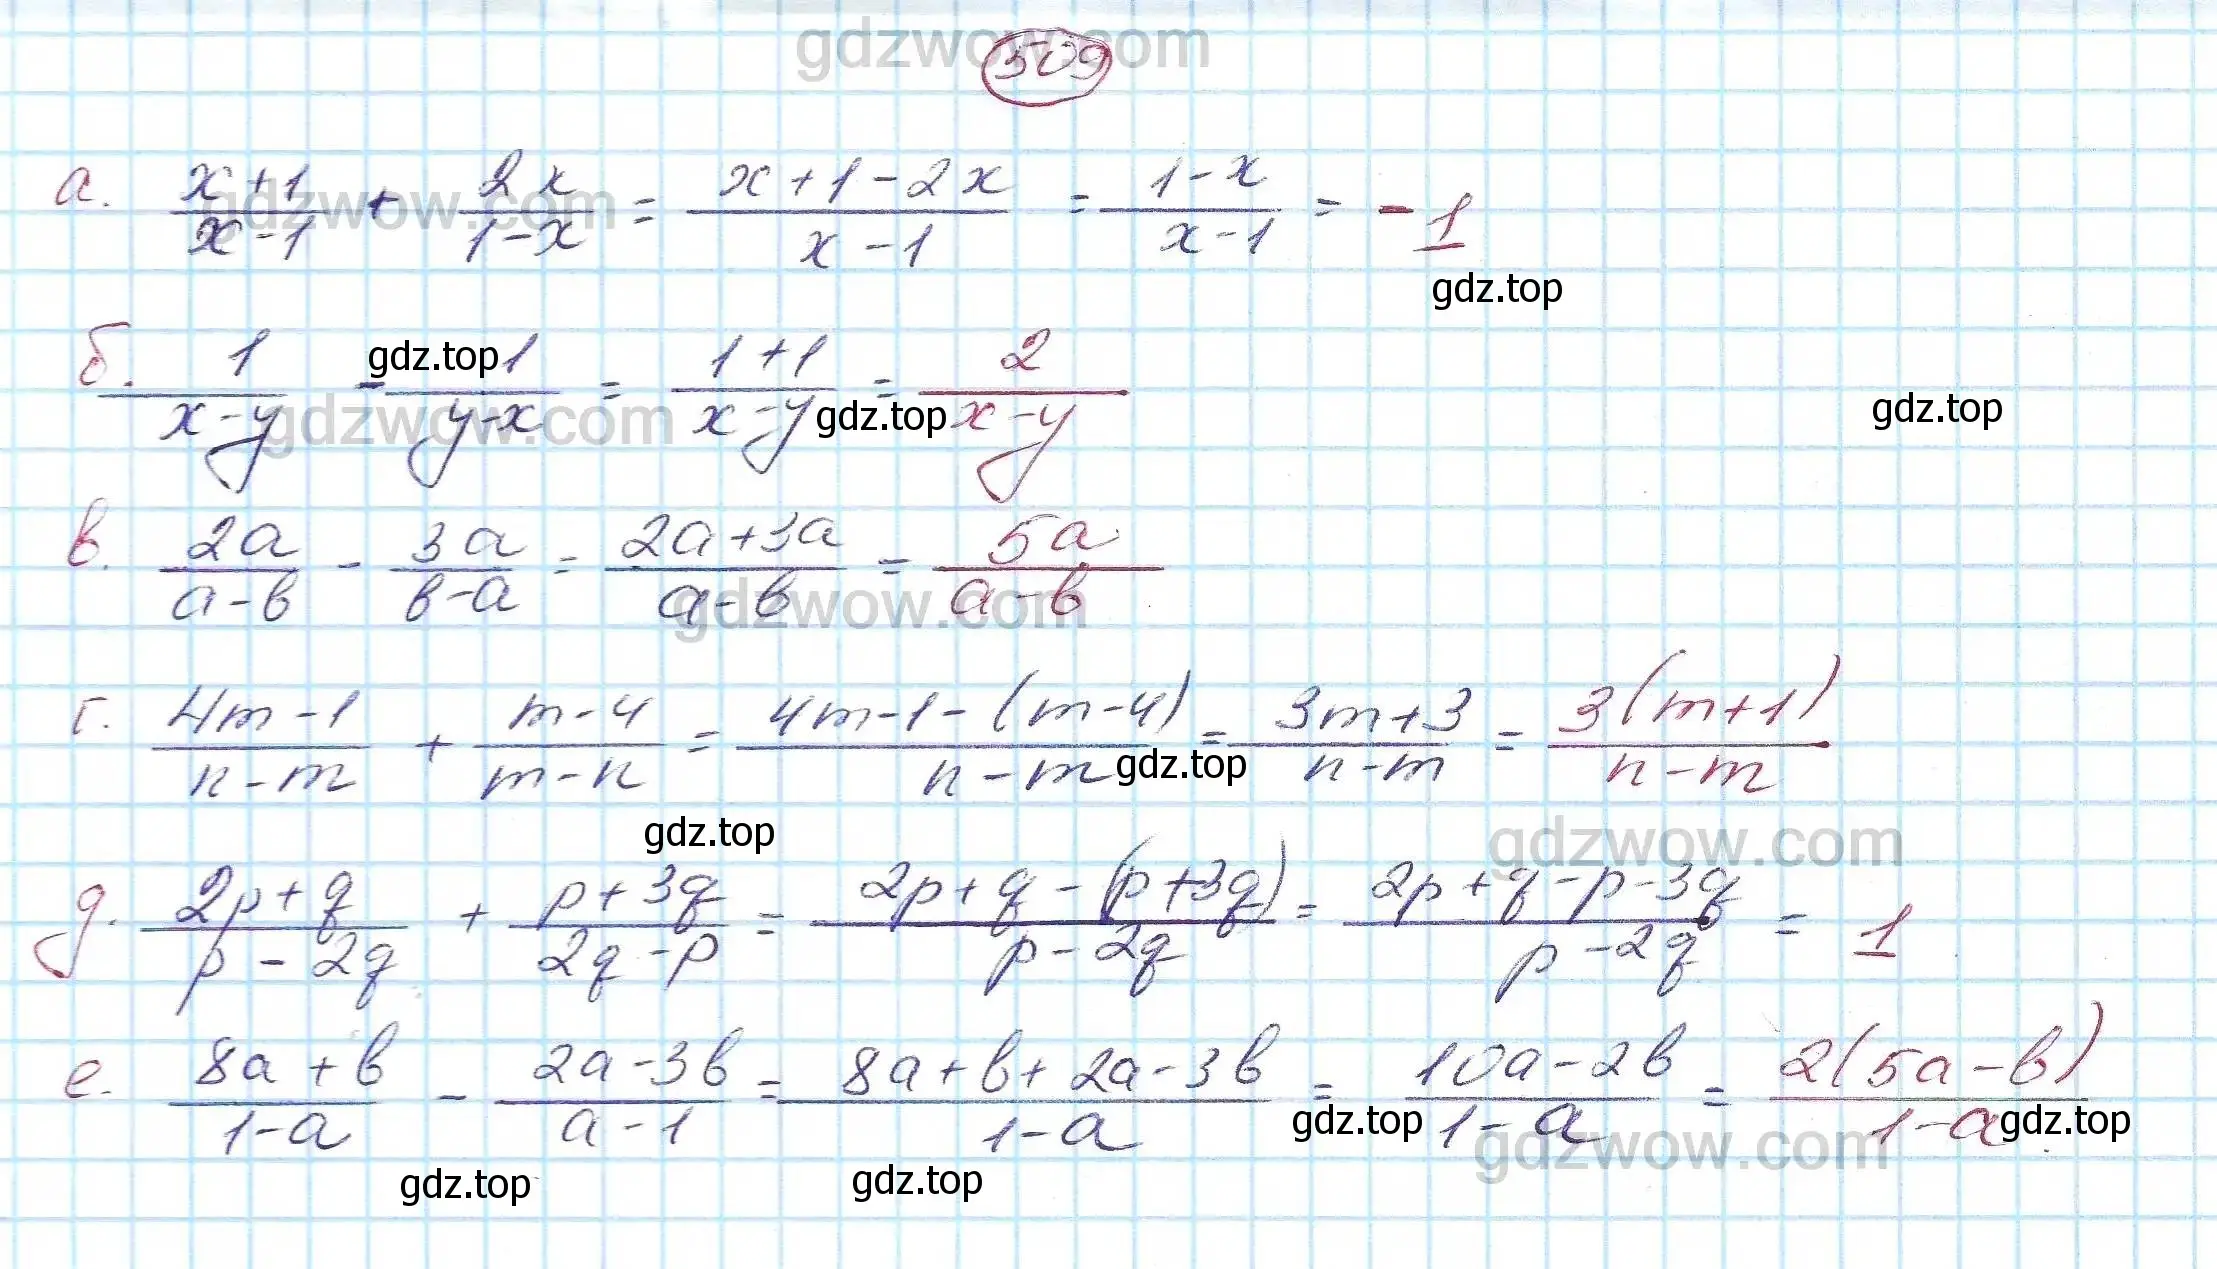 gdzwow.com
509
а. (x+1)/(x-1) + 2x/(1-x) = (x+1-2x)/(x-1) = (1-x)/(x-1) = -1
gdzwow.com
gdz.top
б. 1/(x-y) - 1/(y-x) = (1+1)/(x-y) = 2/(x-y)
gdz.top
gdzwow.com gdz.top gdz.top
в. 2a/(a-b) - 3a/(b-a) = (2a+3a)/(a-b) = 5a/(a-b)
gdzwow.com
г. (4m-1)/(n-m) + (m-4)/(m-n) = (4m-1-(m-4))/(n-m) = (3m+3)/(n-m) = 3(m+1)/(n-m)
gdz.top
gdz.top gdzwow.com
д. (2p+q)/(p-2q) + (p+3q)/(2q-p) = (2p+q-(p+3q))/(p-2q) = (2p+q-p-3q)/(p-2q) = 1
е. (8a+b)/(1-a) - (2a-3b)/(a-1) = (8a+b+2a-3b)/(1-a) = (10a-2b)/(1-a) = 2(5a-b)/(1-a)
gdz.top gdzwow.com gdz.top
gdz.top gdz.top